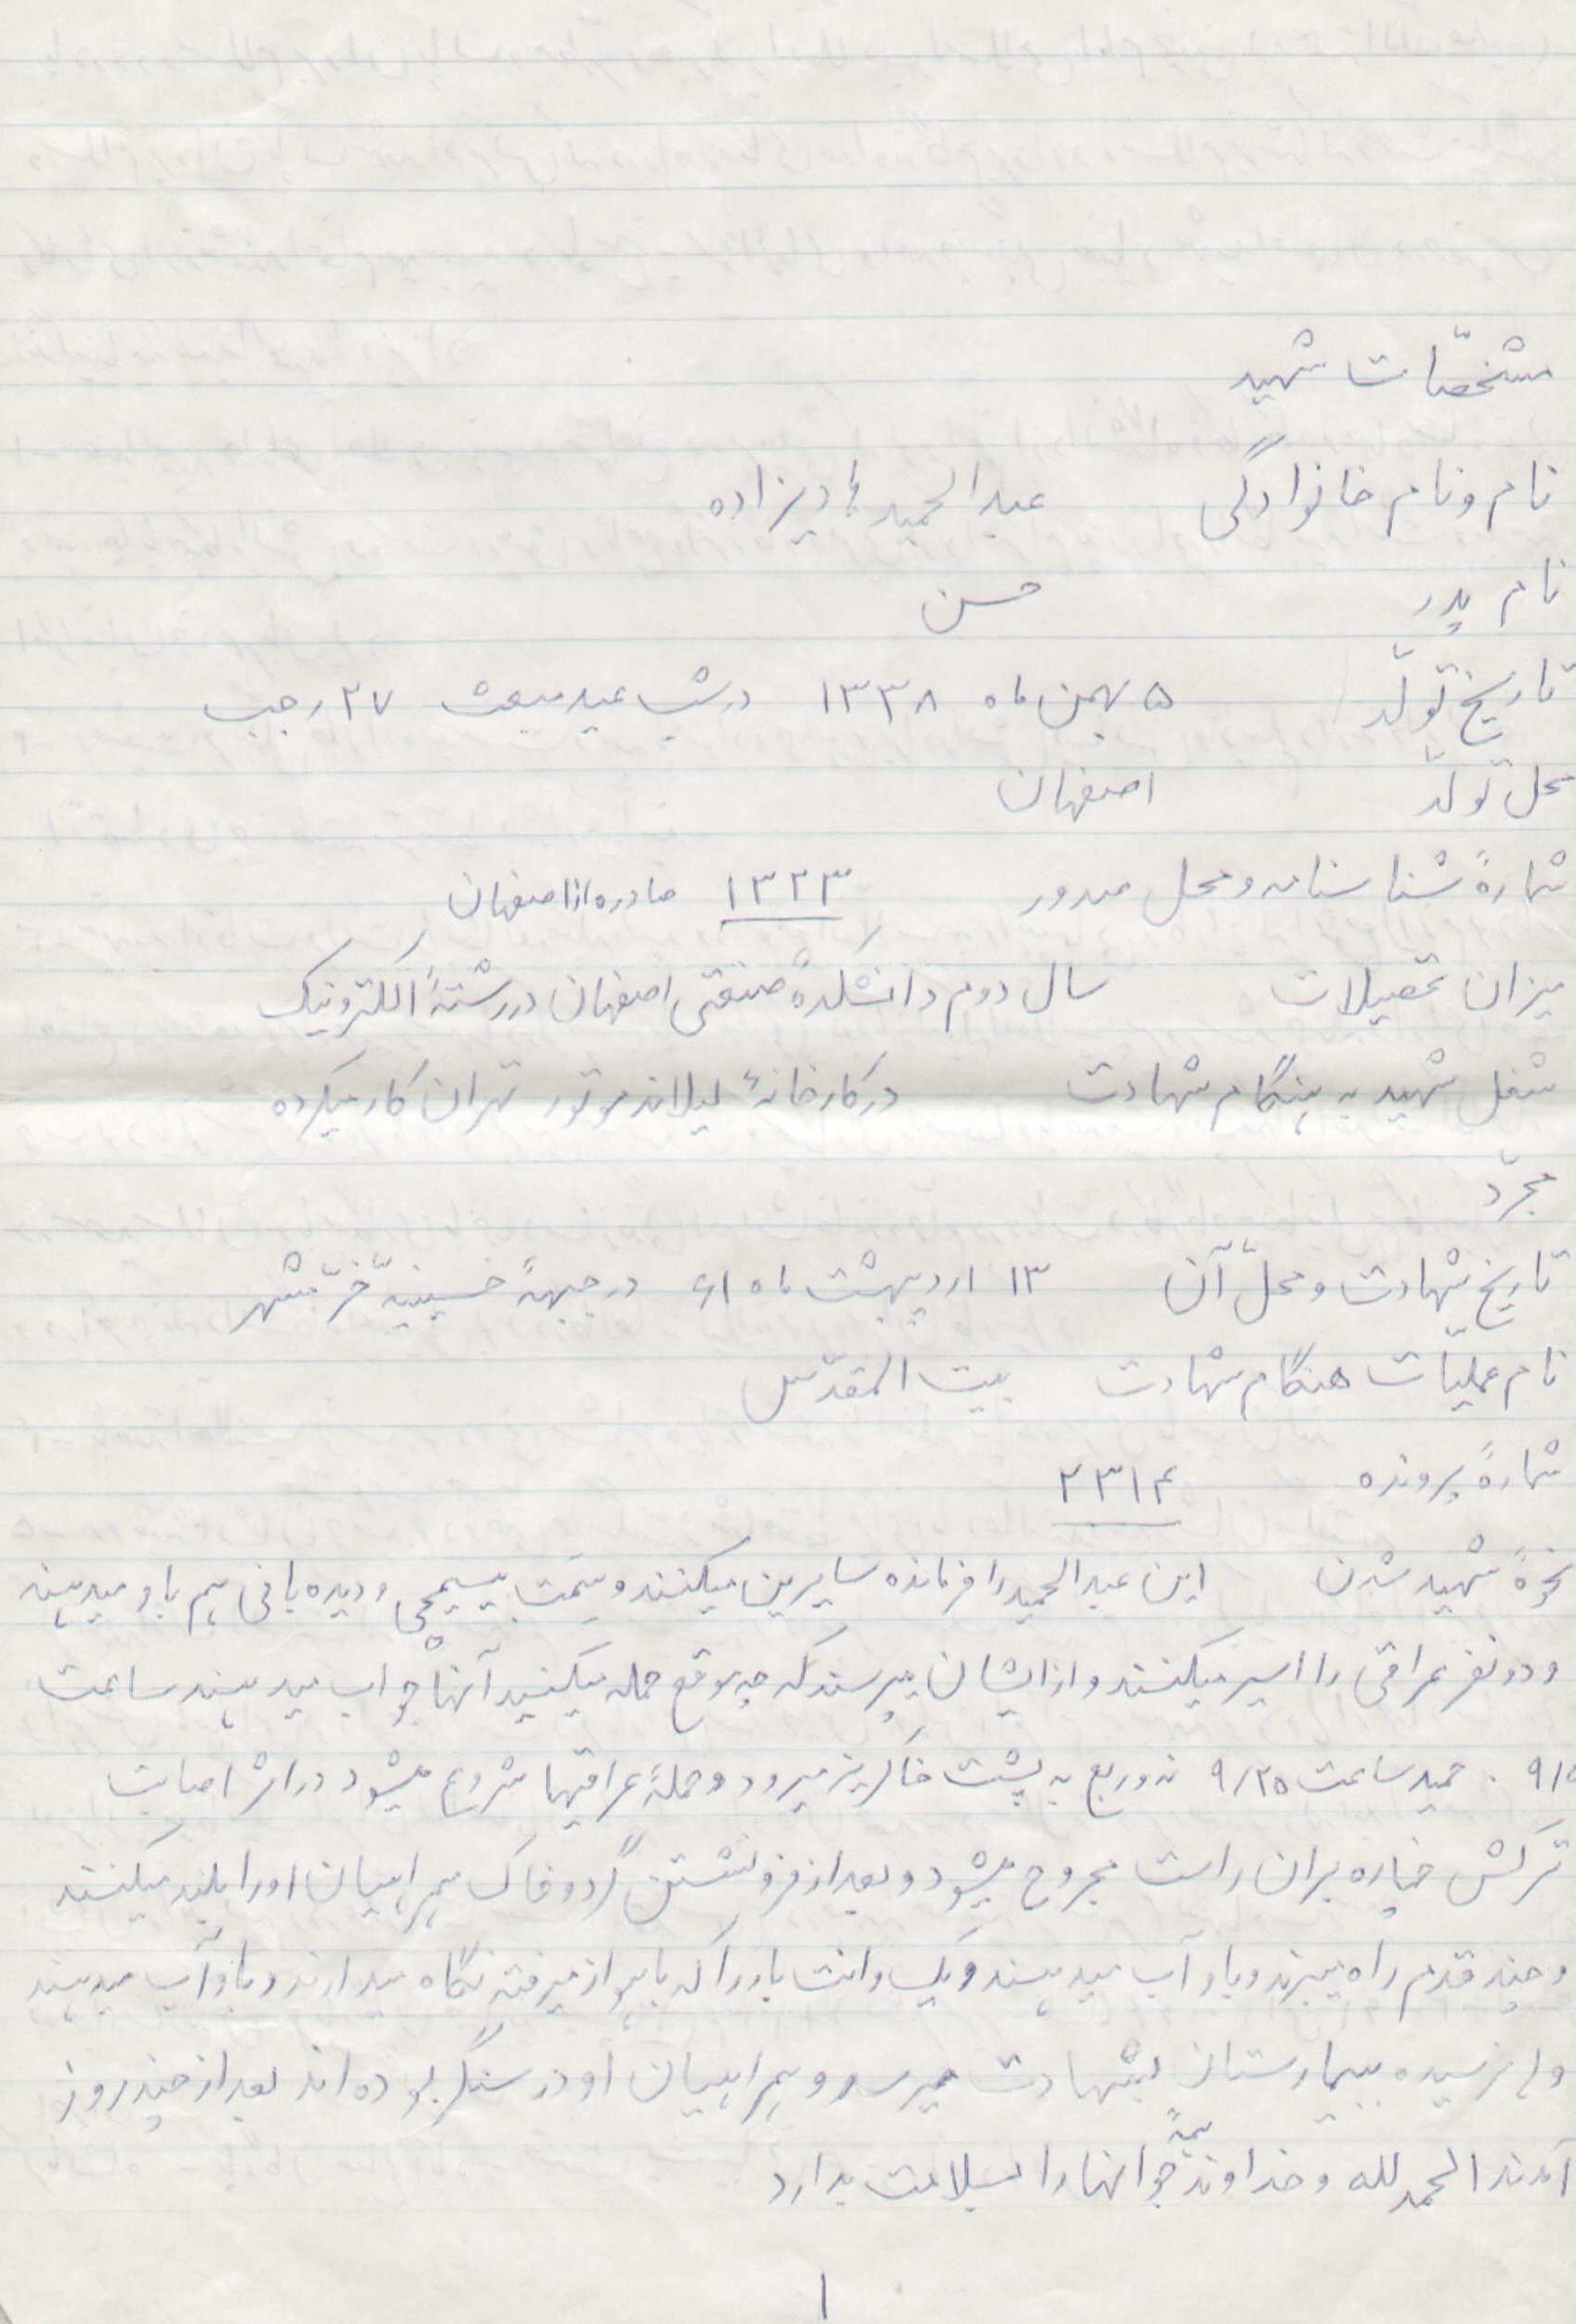 مشخصّات شهید
نام و نام خانوادگی عبدالحمید هادیزاده
نام پدر حسن
تاریخ تولّد ۵ بهمن ماه ۱۳۳۸ در شب عید مبعث ۲۷ رجب
محل تولّد اصفهان
شمارهٔ شناسنامه و محل صدور ۱۳۲۳ صادره از اصفهان
میزان تحصیلات سال دوم دانشکدهٔ صنعتی اصفهان در رشتهٔ الکترونیک
شغل شهید به هنگام شهادت در کارخانهٔ لیلاند موتور تهران کار میکرده
مجرّد
تاریخ شهادت و محلّ آن ۱۳ اردیبهشت ماه ۶۱ در جبههٔ حسینیّه خرّمشهر
نام عملیّات هنگام شهادت بیت المقدّس
شمارهٔ پرونده ۲۳۱۴
نحوهٔ شهید شدن این عبدالحمید را فرمانده سایرین میکنند و سِمَت بیسیمچی و دیده بانی هم باو میدهند
و دو نفر عراقی را اسیر میکنند و از ایشان میپرسند که چه موقع حمله میکنید آنها جواب میدهند ساعت
۹/۵ . حمید ساعت ۹/۲۵ نه و ربع به پشت خاکریز میرود و حملهٔ عراقیها شروع میشود در اثر اصابت
ترکش خمپاره بران راست مجروح میشود و بعد از فرو نشستن گرد و خاک همراهیان او را بلند میکنند
و چند قدم راه میبرند و باو آب میدهند و یک وانت بار را که باهواز میرفته نگاه میدارند و باو آب میدهند
ولی نرسیده ببیمارستان بشهادت میرسد و همراهیان او در سنگر بوده اند بعد از چند روز
آمدند الحمدلله و خداوند همهٔ جوانها را بسلامت بدارد
۱